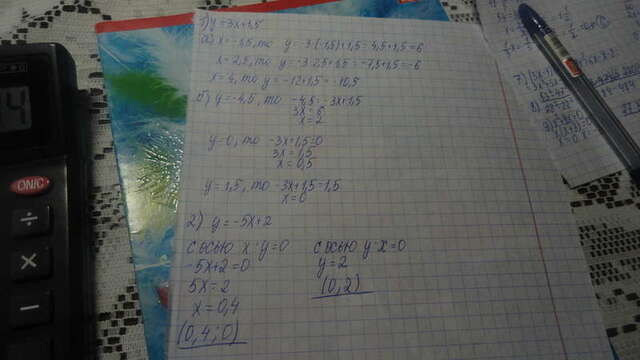 1) y=-3x+1,5
а) x=-1,5, то y=-3·(-1,5)+1,5=4,5+1,5=6
x=2,5, то y=-3·2,5+1,5=-7,5+1,5=-6
x=4, то y=-12+1,5=-10,5
б) y=-4,5, то -4,5=-3x+1,5
3x=6
x=2
y=0, то -3x+1,5=0
3x=1,5
x=0,5
y=1,5, то -3x+1,5=1,5
x=0
2) y=-5x+2
с осью x y=0
-5x+2=0
5x=2
x=0,4
(0,4; 0)
с осью y x=0
y=2
(0,2)
4
ON/C
÷
×
−
7)